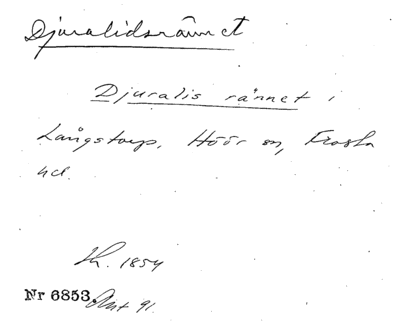 Djuralidsrännet
Djuralis rännet i
Långstorp, Höör sn, Frosta
hd.
Th. 1854
Nr 6853. Ant 91.